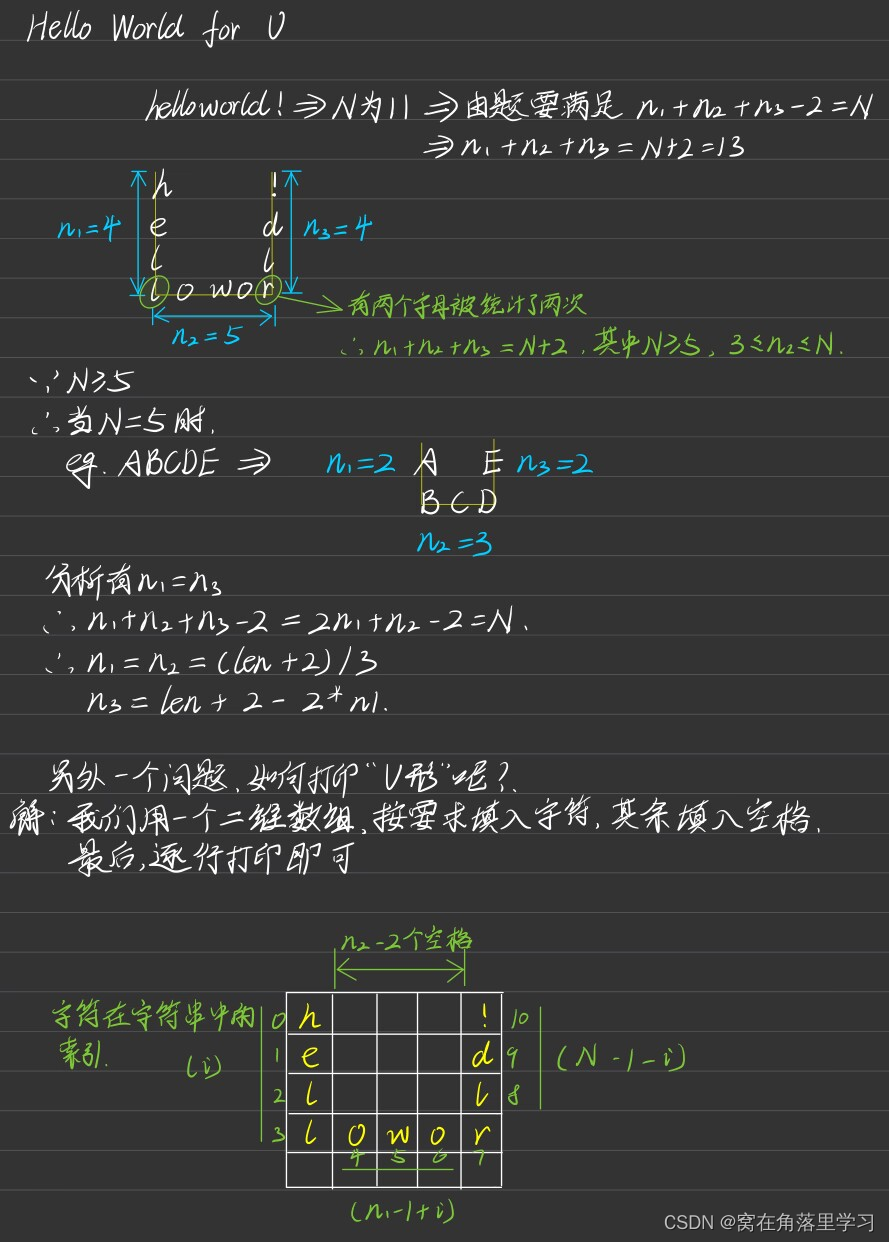 Hello World for U
helloworld! ⇒ N为11 ⇒ 由题要满足 n₁+n₂+n₃-2=N
⇒ n₁+n₂+n₃=N+2=13
h !
n₁=4 e d n₃=4
l l
l o w o r
有两个字母被统计了两次
n₂=5
∴ n₁+n₂+n₃=N+2,其中N≥5,3≤n₂≤N.
∵ N≥5
∴ 当N=5时,
eg. ABCDE ⇒ n₁=2 A E n₃=2
BCD
n₂=3
分析有n₁=n₃
∴ n₁+n₂+n₃-2=2n₁+n₂-2=N.
∴ n₁=n₂=(len+2)/3
n₃=len+2-2*n1.
另外一个问题,如何打印“U形”呢?
解:我们用一个二维数组,按要求填入字符,其余填入空格,
最后,逐行打印即可
n₂-2个空格
字符在字符串中的 0 h ! 10
索引. (i) 1 e d 9 (N-1-i)
2 l l 8
3 l o w o r
4 5 6 7
(n₁-1+i)
CSDN @窝在角落里学习